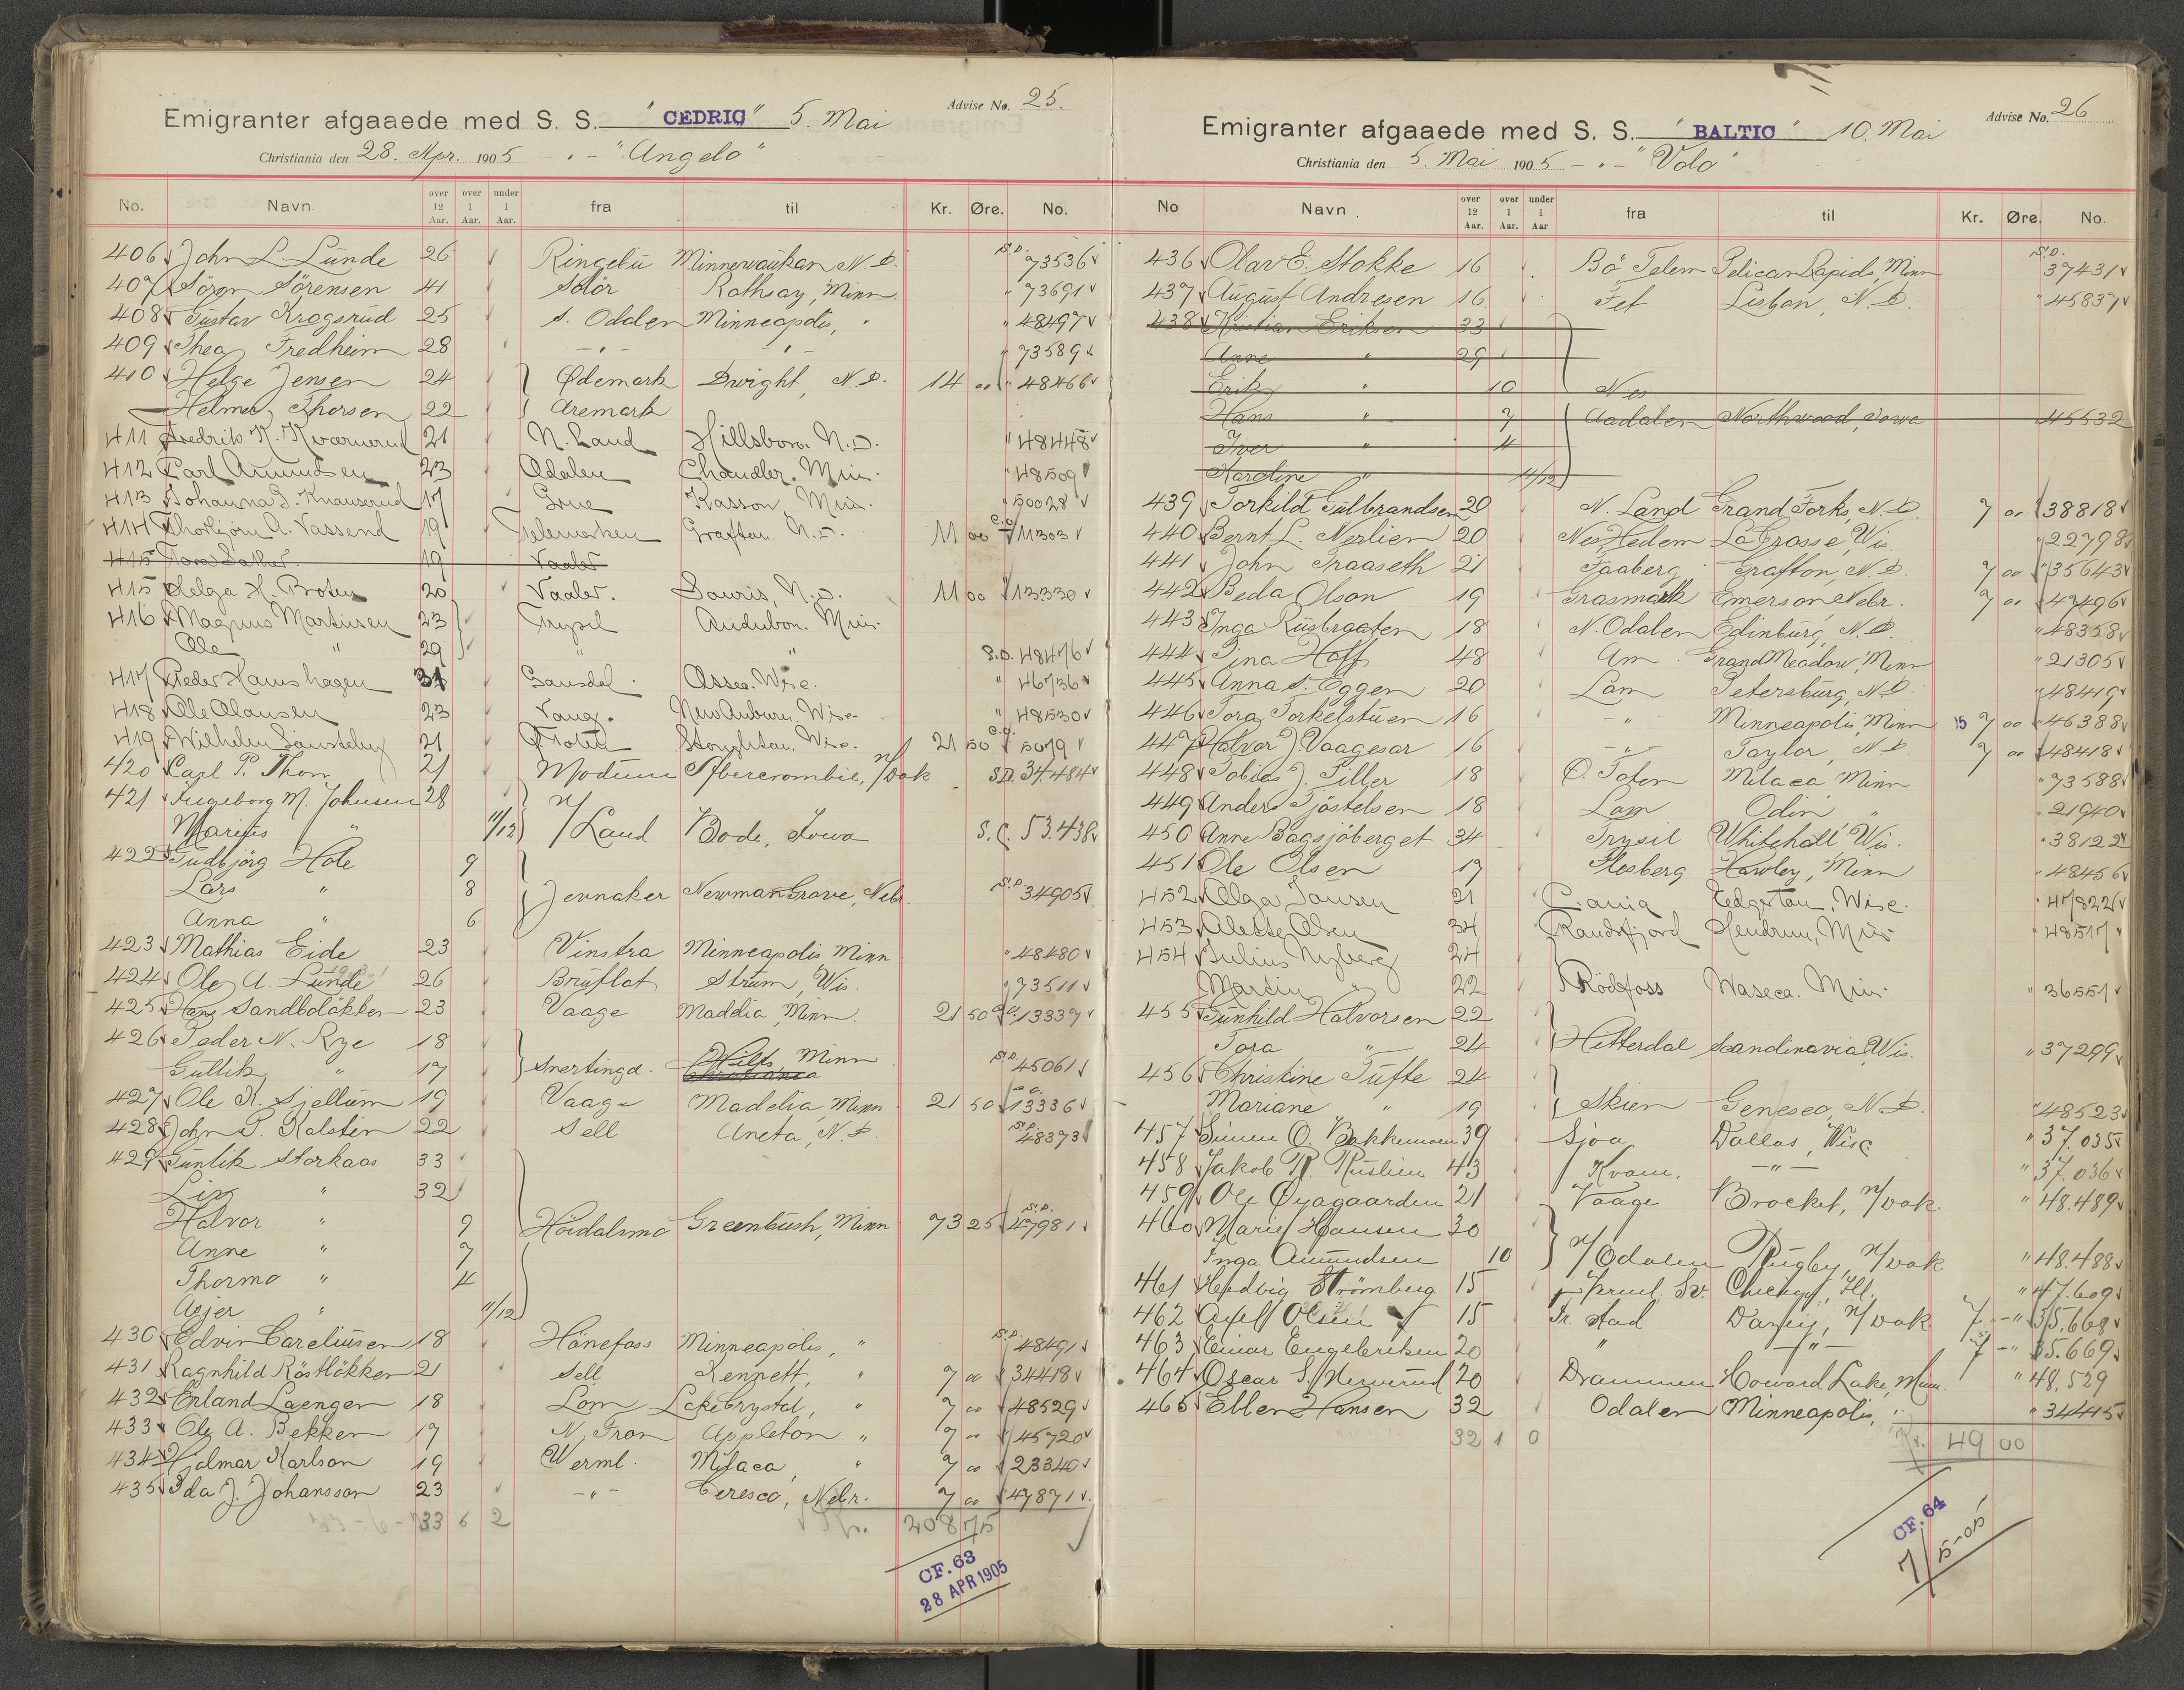 Advise No. 25.
Emigranter afgaaede med S. S. "CEDRIC" 5. Mai
Christiania den 28. Apr. 1905 - " - "Angelo"
No. Navn. over 12 Aar. over 1 Aar. under 1 Aar. fra til Kr. Øre. No.
406 John L. Lunde 26 Ringebu Minnewaukan N.D. S.D. 73536
407 Sören Sörensen 41 Solör Rothsay, Minn. " 73691
408 Gustav Kragsrud 25 S. Odalen Minneapolis, " " 48497
409 Thea Fredheim 28 - " - - " - " 73589
410 Helge Jensen 24 Ødemark Dwight, N.D. 14 00 " 48466
Helmer Thorsen 22 Aremark
411 Fredrik K. Kværnerud 21 N. Land Hillsboro. N.D. " 48448
412 Carl Amundsen 23 Odalen Chandler. Min. " 48509
413 Johanna G. Knauserud 17 Grue Kasson, Min. " 50028
414 Thorbjörn A. Vassend 19 Telemarken Grafton. N.D. 11 00 C.O. 11303
415 Tora Sather. 19 Vaaler
415 Helga H. Broten 20 Vaaler. Souris, N.D. 11 00 " 13330
416 Magnus Martinsen 23 Trysil Audubon. Min.
Ole " 29 " " S.D. 48476
417 Peder Hamshagen 31 Gausdal. Osseo. Wisc. " 46736
418 Olle Olausen 23 Vang. New Auburn, Wisc. " 48530
419 Wilhelm Sausteby 21 Toten Stoughton, Wisc. 21 50 C.O. 5079
420 Carl P. Thon 21 Modum Abercrombie, N/Dak S.D. 34484
421 Ingeborg M. Johnsen 28
Marius " 11/12 N/Land Bode, Iowa S.C. 53.438
422 Gudbjörg Hole 9
Lars " 8 Jevnaker Newman Grove, Nebr. S.D. 34905
Anna " 6
423 Mathias Eide 23 Vinstra Minneapolis Minn " 48480
424 Ole A. Lunde 26 Bruflat Strum, Wis. " 73511
425 Hans Sandbolökken 23 Vaage Maddia, Minn. 21 50 C.O. 13337
426 Peder N. Rye 18
Gullik " 17 Snertingd. Wilds, Minn S.D. 45061
427 Ole K. Sjellum 19 Vaage Madelia Minn 21 50 C.O. 13336
428 John P. Kalstin 22 Sell Aneta, N.D. S.D. 48373
429 Gunlik Storkaas 33
Liv " 32
Halvor " 9 Höidalsmo Greenbush, Minn 73 25 S.D. 47981
Anne " 7
Thormo " 4
Asjer " 11/12
430 Edvin Careliusen 18 Hönefoss Minneapolis, " S.D. 48491
431 Ragnhild Röstlökken 21 Sell Kennett, " 7 00 " 34418
432 Erland Laengen 18 Lom Lake Crystal, " 7 00 " 48529
433 Ole A. Bekken 17 N. Fron Appleton " 7 00 " 45720
434 Hjalmar Karlson 19 Werml. Milaca, " 7 00 " 23340
435 Ida J. Johansson 23 - " - Ceresco, Nebr. 7 00 " 47871
33 6 2 Kr. 208 75
CF. 63
28 APR 1905
Advise No. 26
Emigranter afgaaede med S. S. "BALTIC" 10. Mai
Christiania den 5. Mai 1905 - " - "Volo"
No Navn. over 12 Aar. over 1 Aar. under 1 Aar fra til Kr. Øre. No.
436 Olav E. Stokke 16 Bö Telem Pelican Rapids, Minn S.D. 37431
437 August Andresen 16 Fet Lisbon, N.D. " 45837
438 Kristian Eriksen 33
Anne " 29
Erik " 10 Nes
Hans " 7 Aadalen Northwood, Iowa " 45532
Iver " 4
Karoline " 11/12
439 Torkild Gulbrandsen 20 N. Land Grand Forks, N.D. 7 00 " 38818
440 Bernt L. Nerlien 20 Nes, Hedem La Crosse, Wis " 22798
441 John Traaseth 21 Faaberg Grafton, N.D. 7 00 " 35643
442 Beda Olson 19 Grasmark Emerson Nebr. 7 00 " 47496
443 Inga Rustbraaten 18 N. Odalen Edinburg, N.D. " 48358
444 Tina Hoff 48 Am Grand Meadow, Minn " 21305
445 Anna S. Eggen 20 Lom Petersburg, N.D. " 48419
446 Tora Torkelstuen 16 - " - Minneapolis, Minn 7 00 " 46388
447 Halvor J. Vaagesar 16 - " - Taylor, N.D. 7 00 " 48418
448 Tobias J. Tiller 18 Ø. Toten Milaca Minn " 73588
449 Anders Tjöstelsen 18 Lom Odin " " 21940
450 Anne Bagsjöberget 34 Trysil Whitehall Wis. " 38122
451 Ole Olsen 17 Flesberg Hawley, Minn " 48456
452 Olga Jansen 21 Edgerton, Wisc. " 47822
453 Alette Olsen 34 Randsfjord Hendrum, Min " 48517
454 Julius Nyberg 24
Martin " 22 Rödfoss Waseca. Min. " 36551
455 Gunhild Halvorsen 22
Tora " 24 Hitterdal Scandinavia, Wis. " 37299
456 Christine Tufte 24
Mariane " 19 Skien Geneseo, N.D. " 48523
457 Simen O. Bakkemoen 39 Sjoa Dallas, Wisc " 37.035
458 Jakob R. Ruslien 43 Kvam, - " - " 37.036
459 Ole Øyagaarden 21 Vaage Brocket, N/Dak. " 48.489
460 Marie Hansen 30
Inga Amundsen 10 N/Odalen Rugby, N/Dak. " 48.488
461 Hedvig Strömberg 15 Sv. Chicago, Ill. " 47.609
462 Axel Olsen 15 Fr. stad N/Dak 7 - " 35.668
463 Einar Engebretsen 20 " - " - 7 - " 35.669
464 Oscar S. Nerverud 20 Drammen Howard Lake, Minn. " 48.529
465 Ellen Hansen 32 Odalen Minneapolis, " " 34415
32 1 0 Kr. 49 00
CF. 64
7/5-05